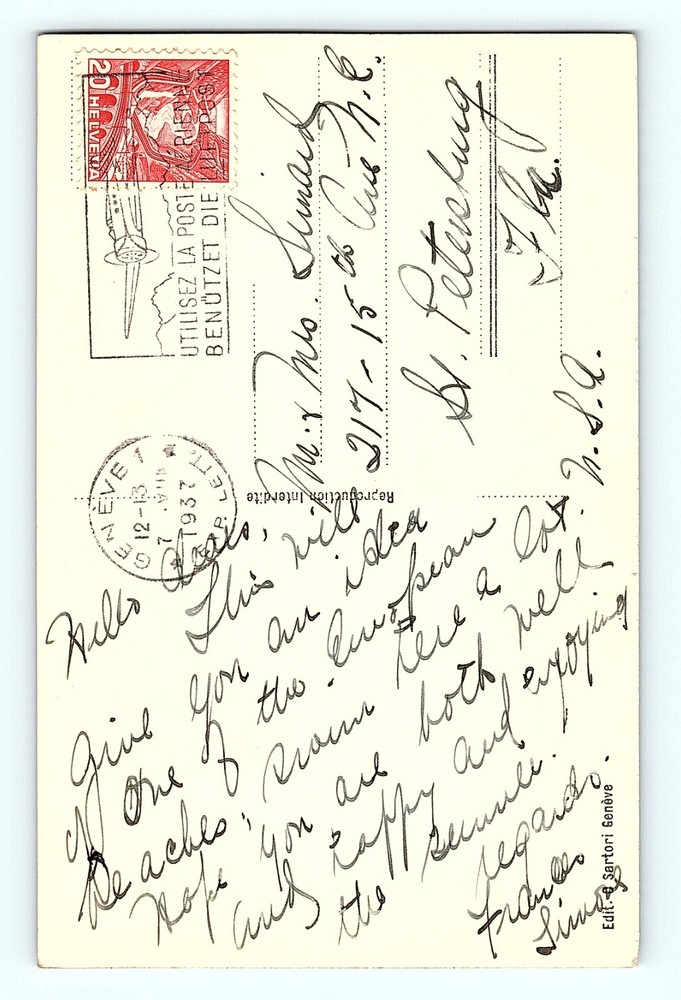 20 HELVETIA
UTILISEZ LA POSTE AÉRIENNE
BENÜTZET DIE LUFTPOST
GENÈVE 1
12-13
7
1937
EXP. LETT.
Hello Dears,
This will
give you an idea
of one of the European
Beaches. Swim here a lot.
Hope you are both well
and happy and enjoying
the summer.
regards.
Frances
Simos
Reproduction Interdite
M. & Mrs.
217-15th Ave N.E.
St. Petersburg
Fla.
U.S.A.
Edit. O Sartori Genève